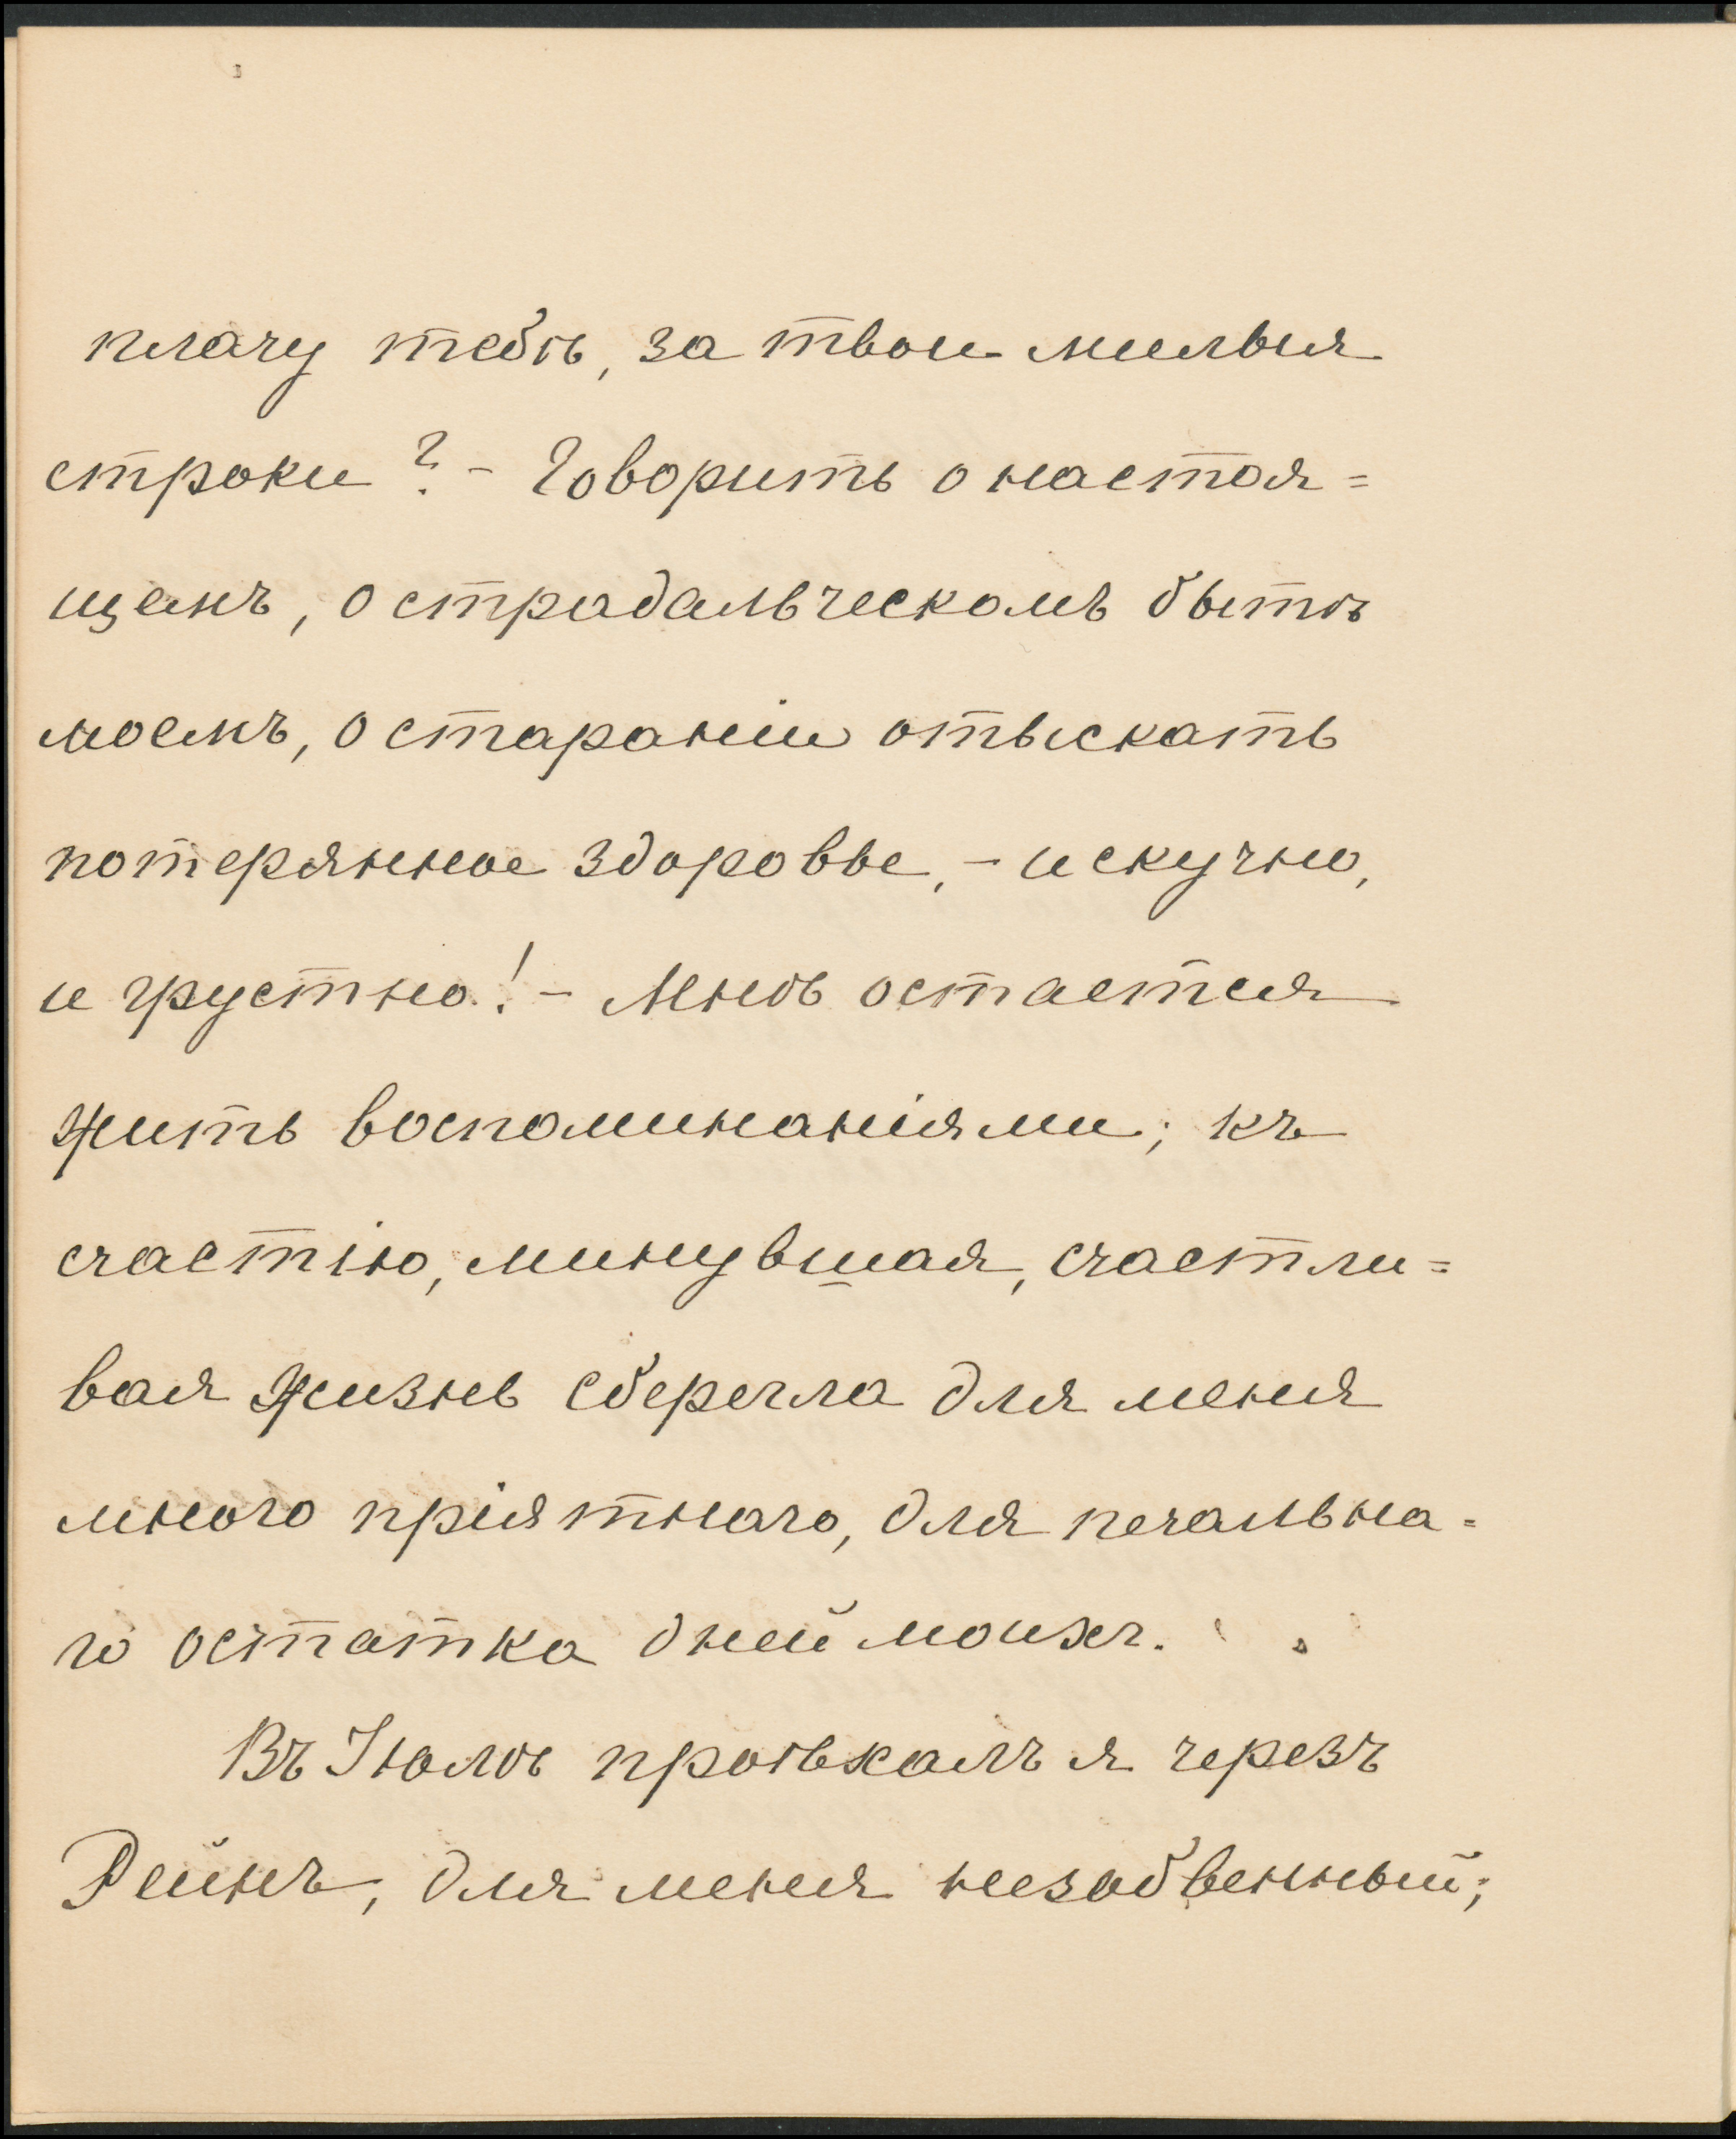 плачу тебѣ, за твои милыя
строки? - Говорить о настоя=
щемъ, о страдальческомъ бытѣ
моемъ, о стараніи отыскать
потерянное здоровье, - и скучно,
и грустно! - Мнѣ остается
жить воспоминаніями; къ
счастію, минувшая, счастли=
вая жизнь сберегла для меня
много пріятнаго, для печальна=
го остатка дней моихъ.
Въ Іюлѣ проѣхалъ я черезъ
Рейнъ, для меня незабвенный;